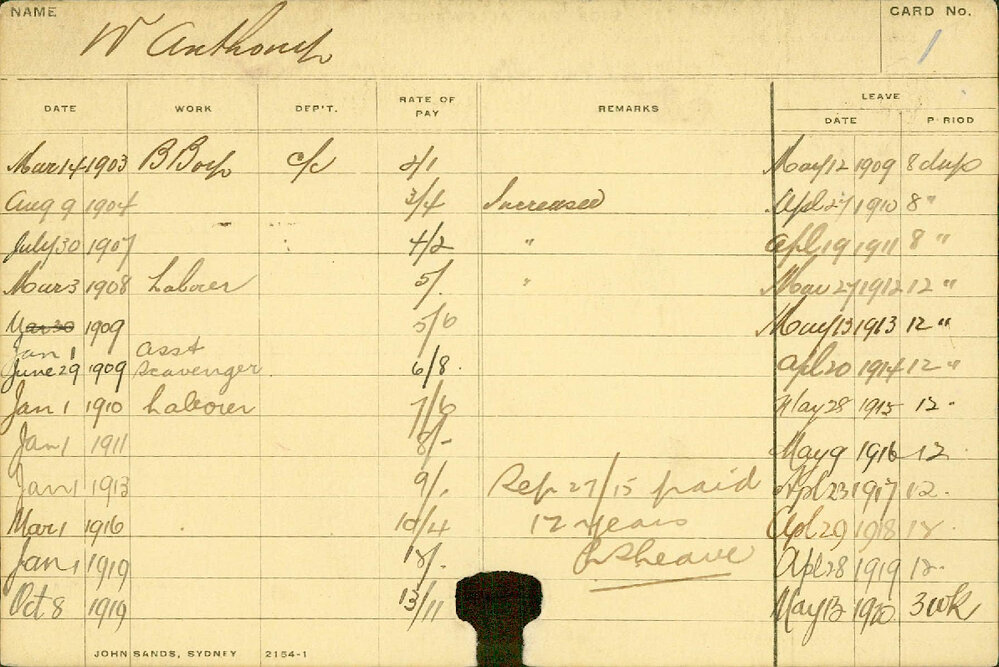 NAME W Anthony CARD No. 1
DATE WORK DEP'T. RATE OF PAY REMARKS LEAVE DATE PERIOD
Mar 14 1903 B Boy c/c 2/1 May 12 1909 8 days
Aug 9 1904 3/4 Increased Apl 27 1910 8 "
July 30 1907 4/2 " Apl 19 1911 8 "
Mar 3 1908 Laborer 5/. " Mar 27 1912 12 "
Mar 30 1909 5/6 May 13 1913 12 "
Jan 1 asst
June 29 1909 Scavenger 6/8. Apl 20 1914 12 "
Jan 1 1910 Laborer 7/6 May 28 1915 12.
Jan 1 1911 8/- May 9 1916 12.
Jan 1 1913 9/. Sep 27/15 paid Apl 23 1917 12.
Mar 1 1916 10/4 12 years Apl 29 1918 12.
Jan 1 1919 12/. Apl 28 1919 12.
Oct 8 1919 13/11 May 13 1920 3 wk
JOHN SANDS, SYDNEY 2154-1